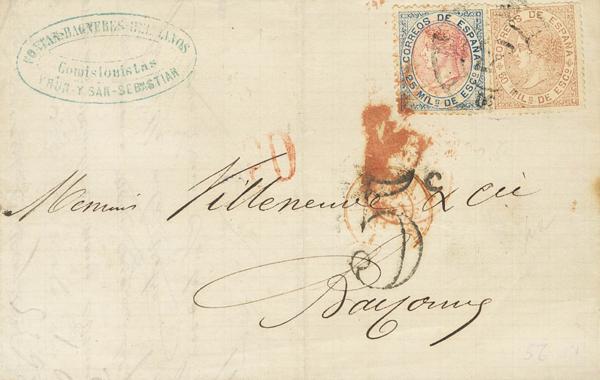 COSTAS-BAGNERES-BELLIDOS
Comisionistas
YRUN-Y-SAN-SEBASTIAN
CORREOS DE ESPAÑA
25 MILS DE ESCO
CORREOS DE ESPAÑA
50 MILS DE ESCO
PD
Messieurs Villeneuve & cie
Bayonne